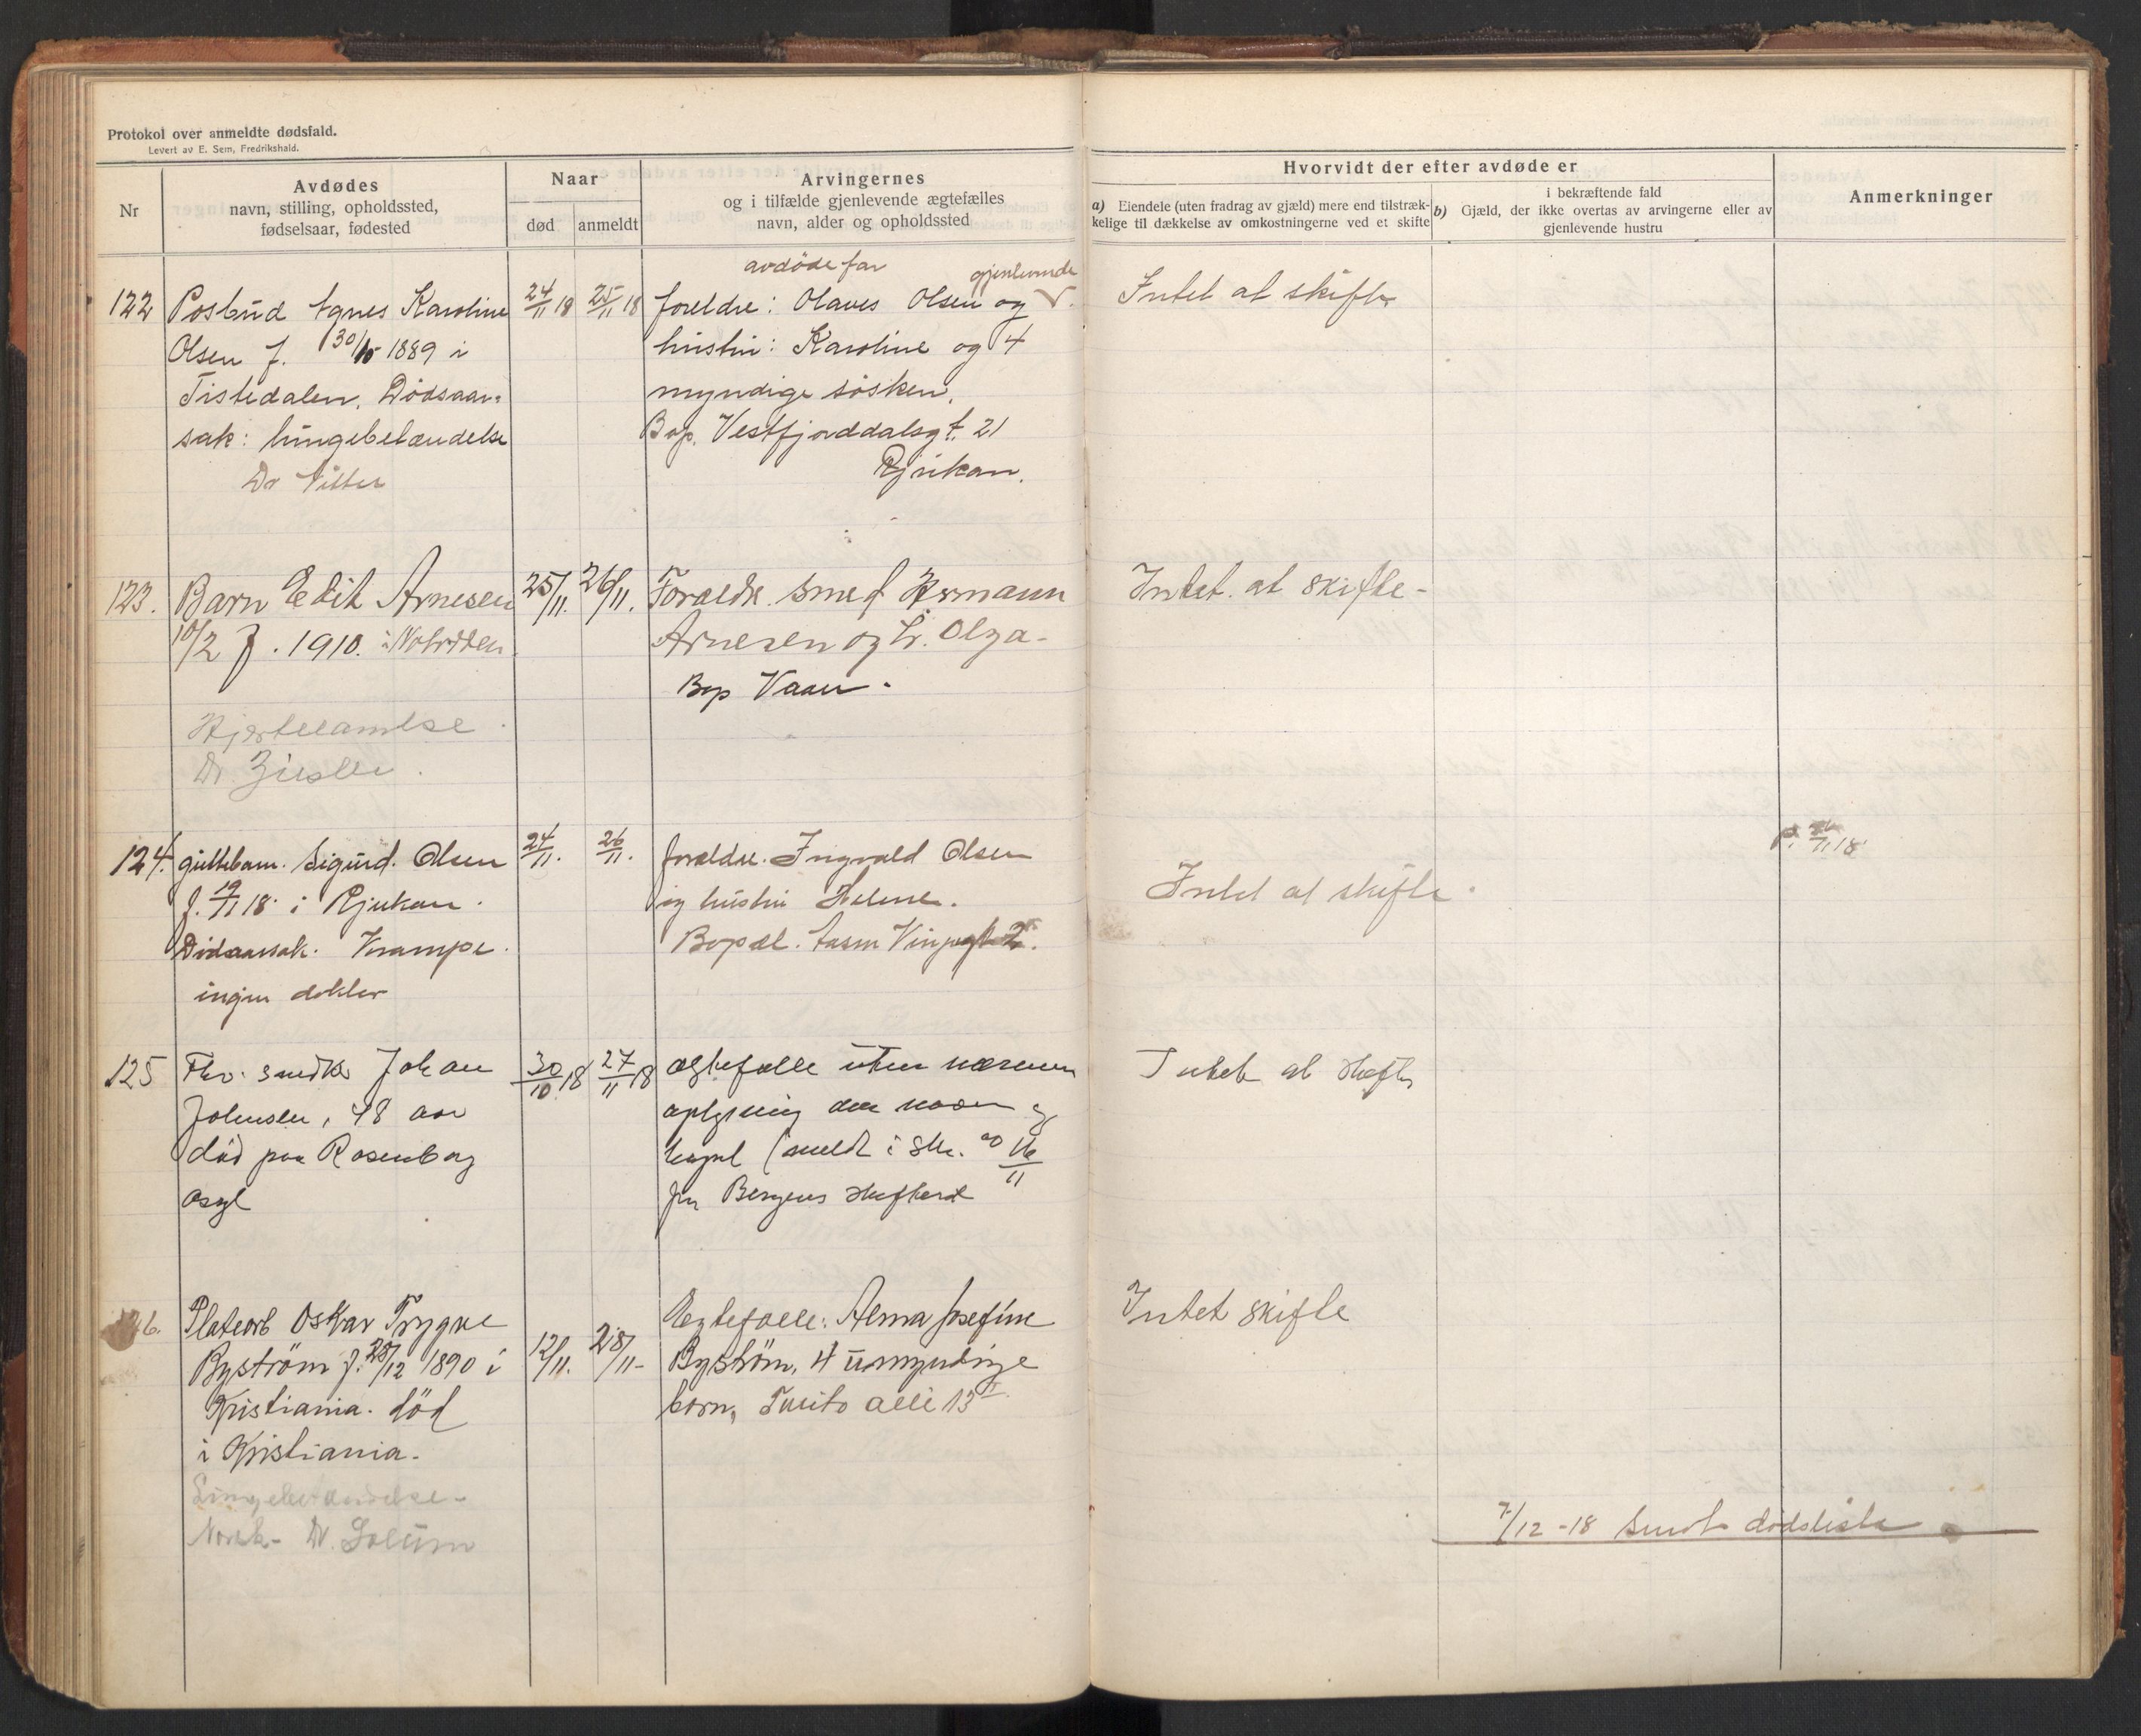 Protokol over anmeldte dødsfald.
Levert av E. Sem, Fredrikshald.
Nr
Avdødes
navn, stilling, opholdssted,
fødselsaar, fødested
Naar
død
anmeldt
Arvingernes
og i tilfælde gjenlevende ægtefælles
navn, alder og opholdssted
Hvorvidt der efter avdøde er
a) Eiendele (uten fradrag av gjæld) mere end tilstræk-
kelige til dækkelse av omkostningerne ved et skifte
i bekræftende fald
b) Gjæld, der ikke overtas av arvingerne eller av
gjenlevende hustru
Anmerkninger
122
Postbud Agnes Karoline
Olsen f. 30/10 1889 i
Tistedalen. Dødsaar-
sak: lungebetændelse
Dr
24/11 18
25/11 18
avdöde far
gjenlevende
foreldre: Olaves Olsen og
hustru: Karoline og 4
myndige søsken.
Bop. Vestfjorddalsgt. 21
Rjukan.
Intet at skifte
123.
Barn Edit Arnesen
10/2 f. 1910. i Notodden
Hjertelamelse.
Dr.
25/11.
26/11.
Foreldre smed Hermann
Arnesen og h. Olga-
Bop Vaaer.
Intet. at skifte-
124.
guttebarn. Sigurd. Olsen
f. 19/11 18. i Rjukan.
Dødsaarsak. Krampe.
ingen doktor
24/11.
26/11.
foreldre. Ingvald Olsen
og hustru Helene.
Bopæl. Aasm Vinjesgt 2.
Intet at skifte.
125
Johan
Johnsen, 48 aar
død paa Rosenborg
asyl
30/10 18
27/11 18
ægtefælle uten nærmere
oplysning om navn og
bopel (meldt i skr. av 16/11
fra Bergens skifteret
Intet at skifte
126.
Platearb Oskar Trygve
Byström f. 28/12 1890 i
Kristiania. død
i Kristiania.
Lungebetændelse-
Norsk- Dr. Solum
12/11.
28/11-
Ægtefælle: Alma Josefine
Byström, 4 umyndige
born, Tveito alle 13 II
Intet skifte
7/12-18 Sendt dødsliste